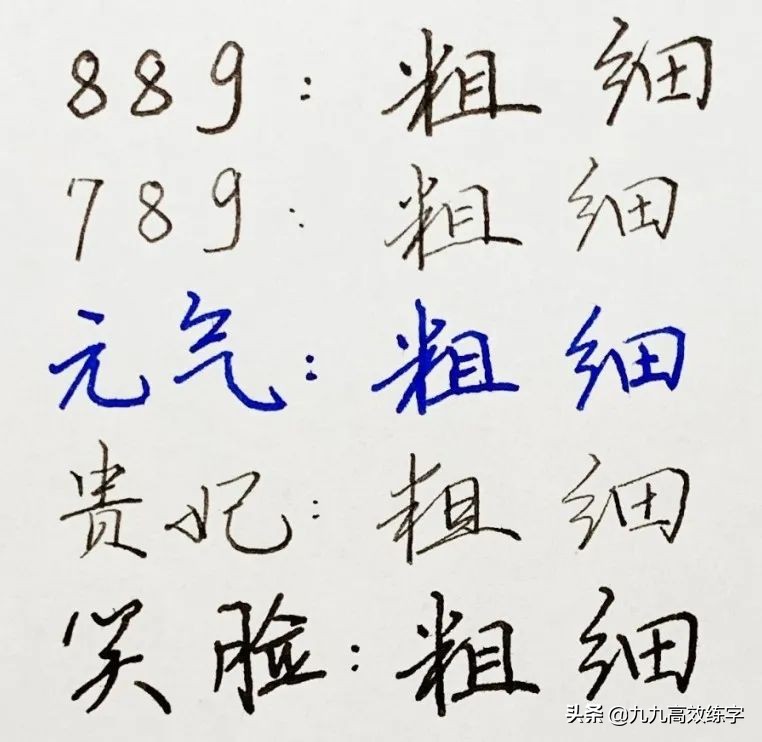 889：粗细
789：粗细
元气：粗细
贵妃：粗细
笑脸：粗细
头条 @九九高效练字